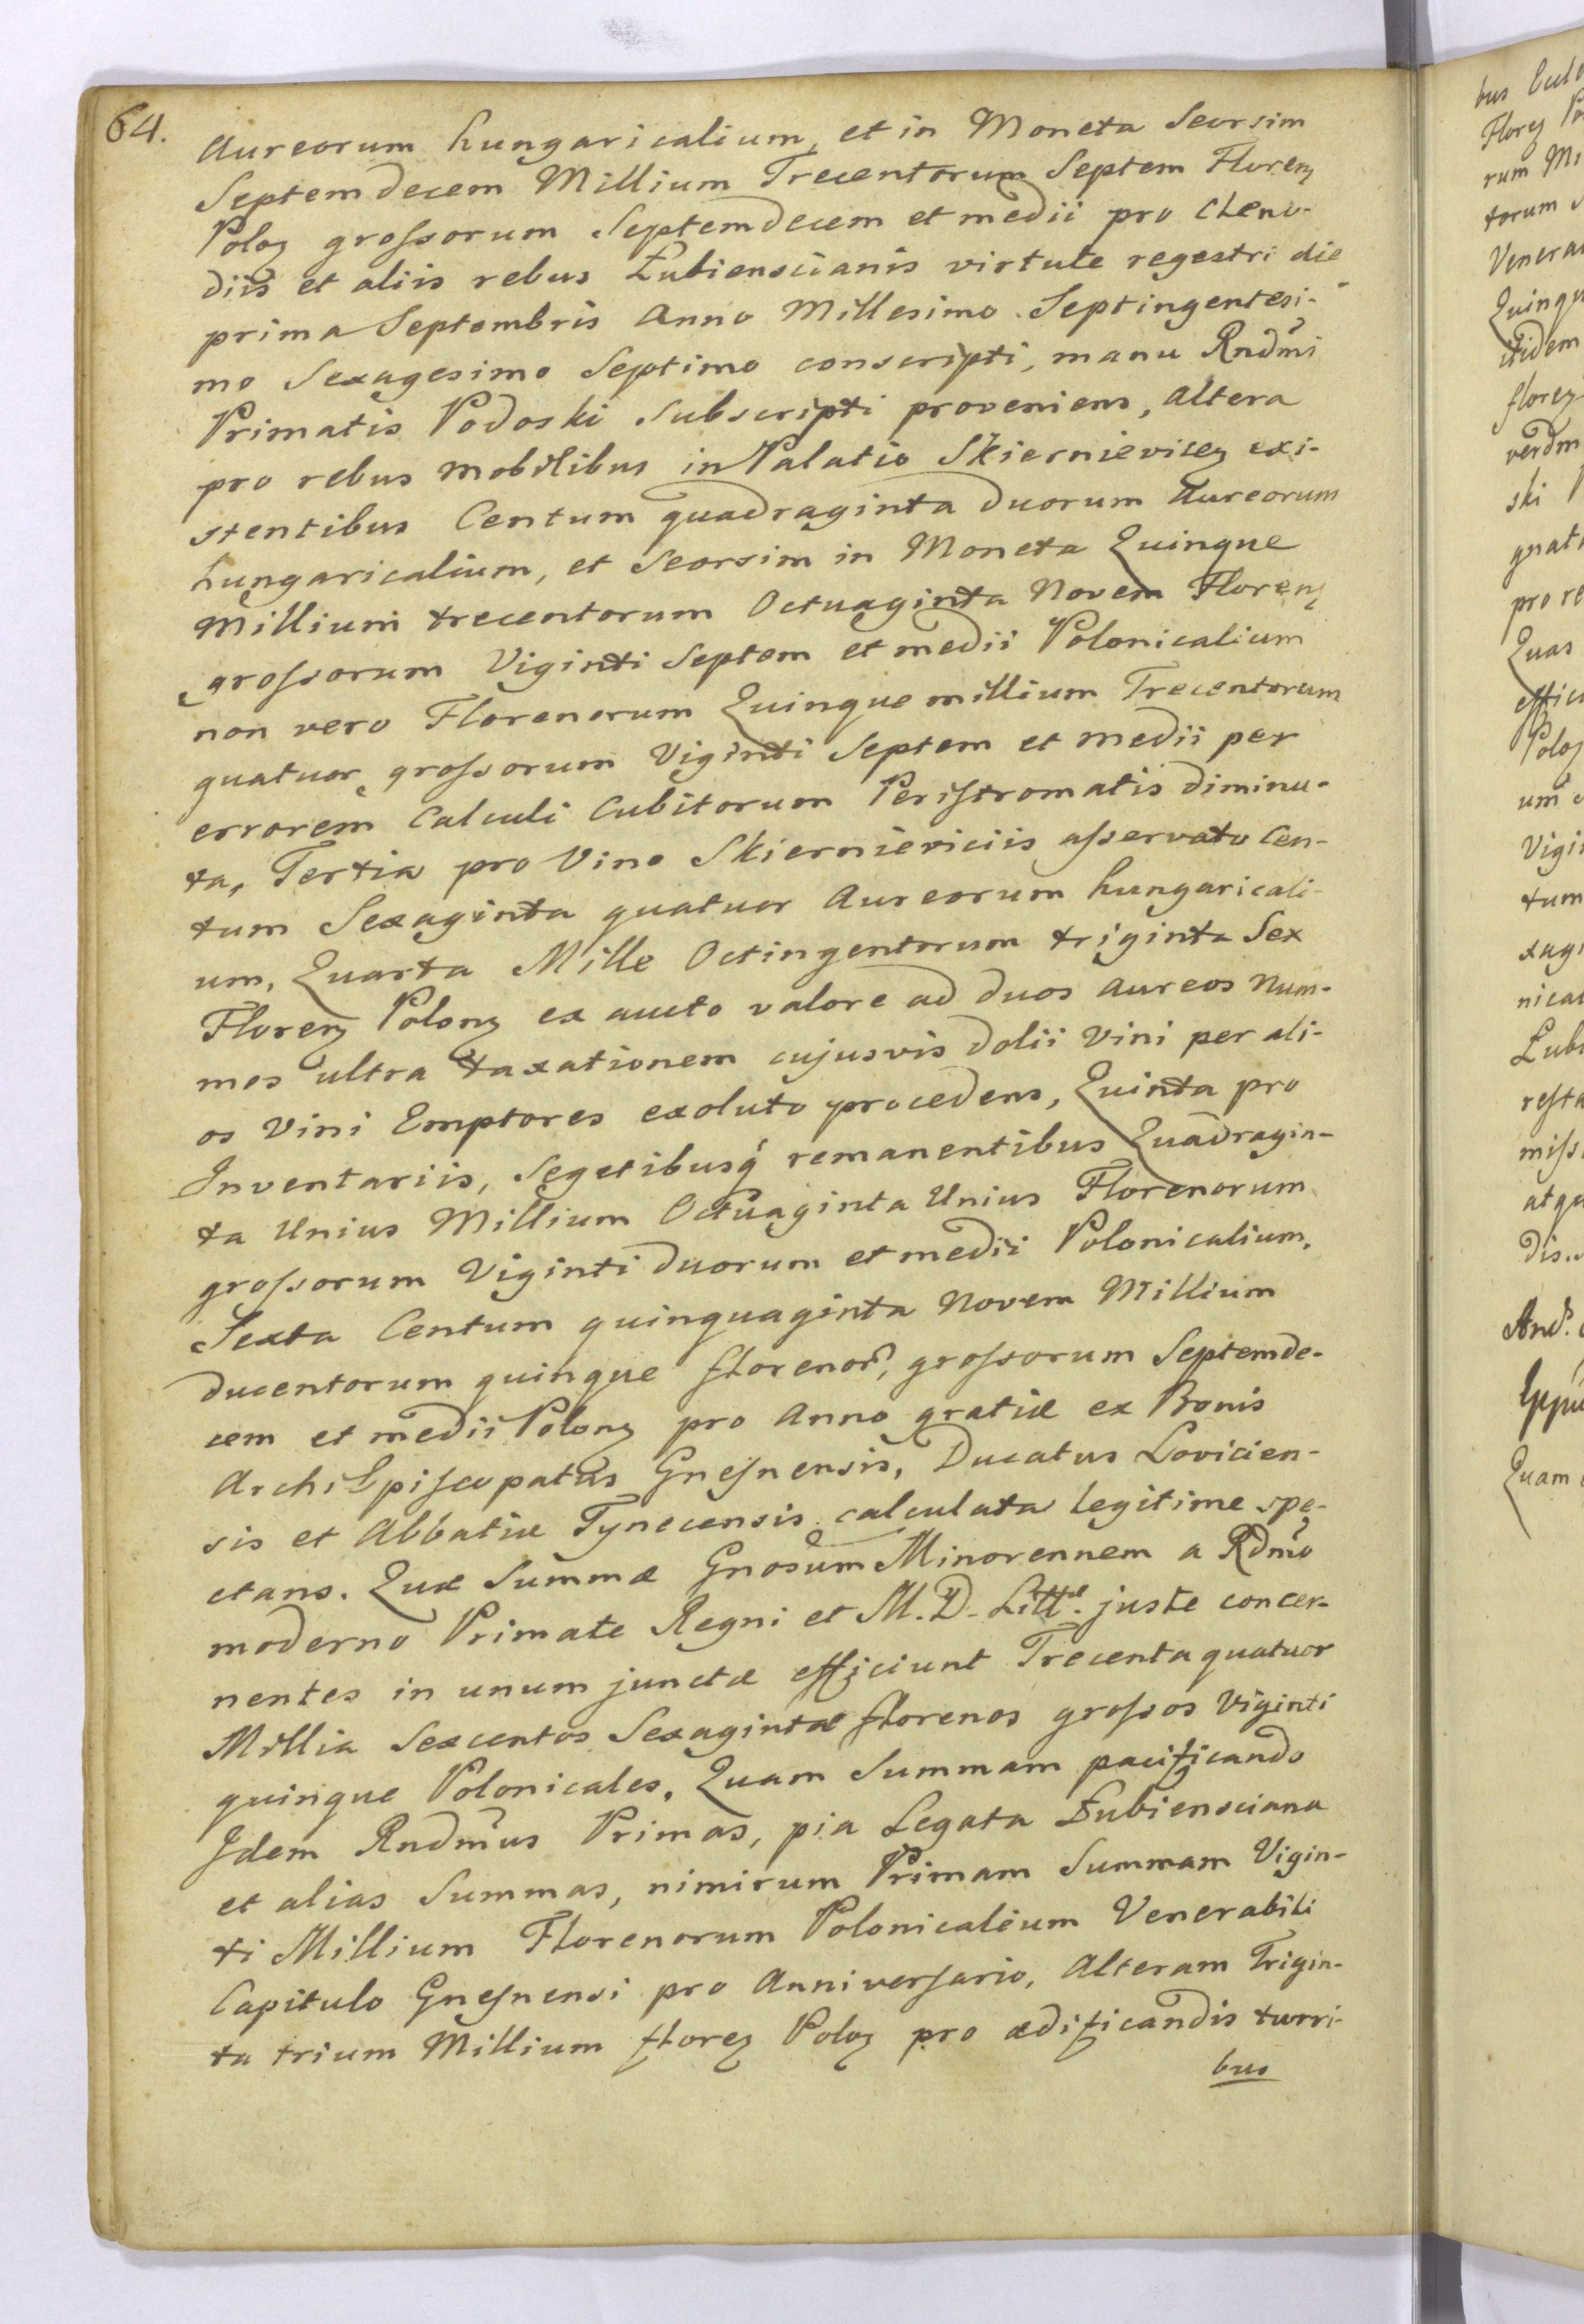 64.
Aureorum hungaricalium, et in Moneta Seorsim
Septemdecem Millium Trecentorum Septem Floreɳ
Poloɳ grossorum Septemdecem et medii pro Cleno-
diis et aliis rebus Łubienscianis virtute regestri die
prima Septembris Anno Millesimo Septingentesi-
mo Sexagesimo Septimo conscripti, manu Rndm̃i
Primatis Podoski Subscripti proveniens, altera
pro rebus mobilibus in Palatio Skiernieviceɳ exi-
stentibus Centum quadraginta duorum Aureorum
hungaricalium, et Seorsim in Moneta Quinque
Millium trecentorum Octuaginta Novem Floreɳ
grossorum Viginti Septem et medii Polonicalium
non vero Florenorum Quinque millium Trecentorum
quatuor grossorum Viginti Septem et medii per
errorem Calculi Cubitorum Peristromatis diminu-
ta, Tertia pro Vino Skierniewiciis asservato Cen-
tum Sexaginta quatuor Aureorum hungaricali-
um, Quarta Mille Octingentorum triginta Sex
Floreɳ Poloɳ ex aucto valore ad duos aureos Num-
mos ultra taxationem cujusvis dolii Vini per ali-
os Vini Emptores exoluto procedens, Quinta pro
Inventariis, Segetibusq́ remanentibus Quadragin-
ta Unius Millium Octuaginta Unius Florenorum
grossorum Viginti duorum et medii Polonicalium,
Sexta Centum quinquaginta Novem Millium
ducentorum quinque florenor̃, grossorum Septemde-
cem et medii Poloɳ pro Anno gratiæ ex Bonis
ArchiEpiscopatus Gnesnensis, Ducatus Lovicien-
sis et Abbatiæ Tynecensis calculata legitime spe-
ctans. Quæ Summæ Gnosum Minorennem a Rdm̃o
moderno Primate Regni et M. D. Littæ. juste concer-
nentes in unum junctæ efficiunt Trecenta quatuor
Millia Sexcentos Sexaginta florenos grossos Viginti
quinque Polonicales. Quam Summam pacificando
Idem Rndm̃us Primas, pia Legata Łubiensciana
et alias Summas, nimirum Primam Summam Vigin-
ti Millium Florenorum Polonicalium Venerabili
Capitulo Gnesnensi pro Anniversario, Alteram Trigin-
ta trium Millium floreɳ Poloɳ pro ædificandis turri-
bus